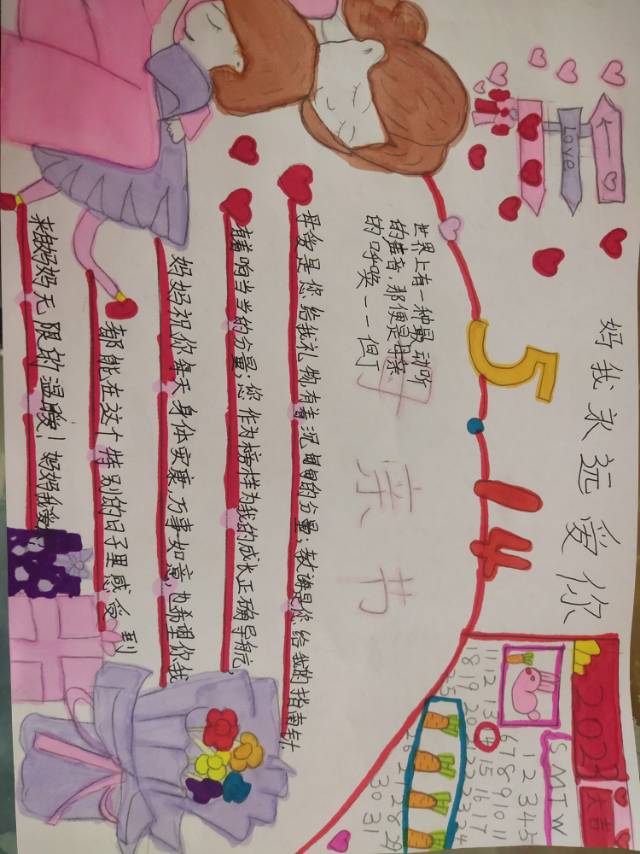 妈我永远爱你
Love
5 14
202
大吉
SMTW
12345
67891011
11 12 13 14 15 16 17
18 19 20 22 23 24
25 26 28 29
30 31
世界上有一种最动听
的声音,那便是母亲
的呼唤——但丁
亲书
母爱是您给我礼物有着沉甸甸的分量;教诲是您给我的指南针
有着响当当的分量;您作为榜样为我的成长正确导航
妈妈祝你每天身体安康,万事如意,也希望你我
都能在这个特别的日子里感受到
来自妈妈无限的温暖!妈妈我爱